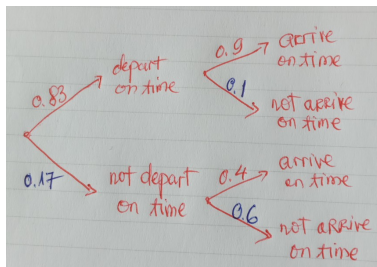 0.9
arrive
on time
depart
on time
0.83
0.1
not arrive
on time
0.17
not depart
on time
0.4
arrive
on time
0.6
not arrive
on time